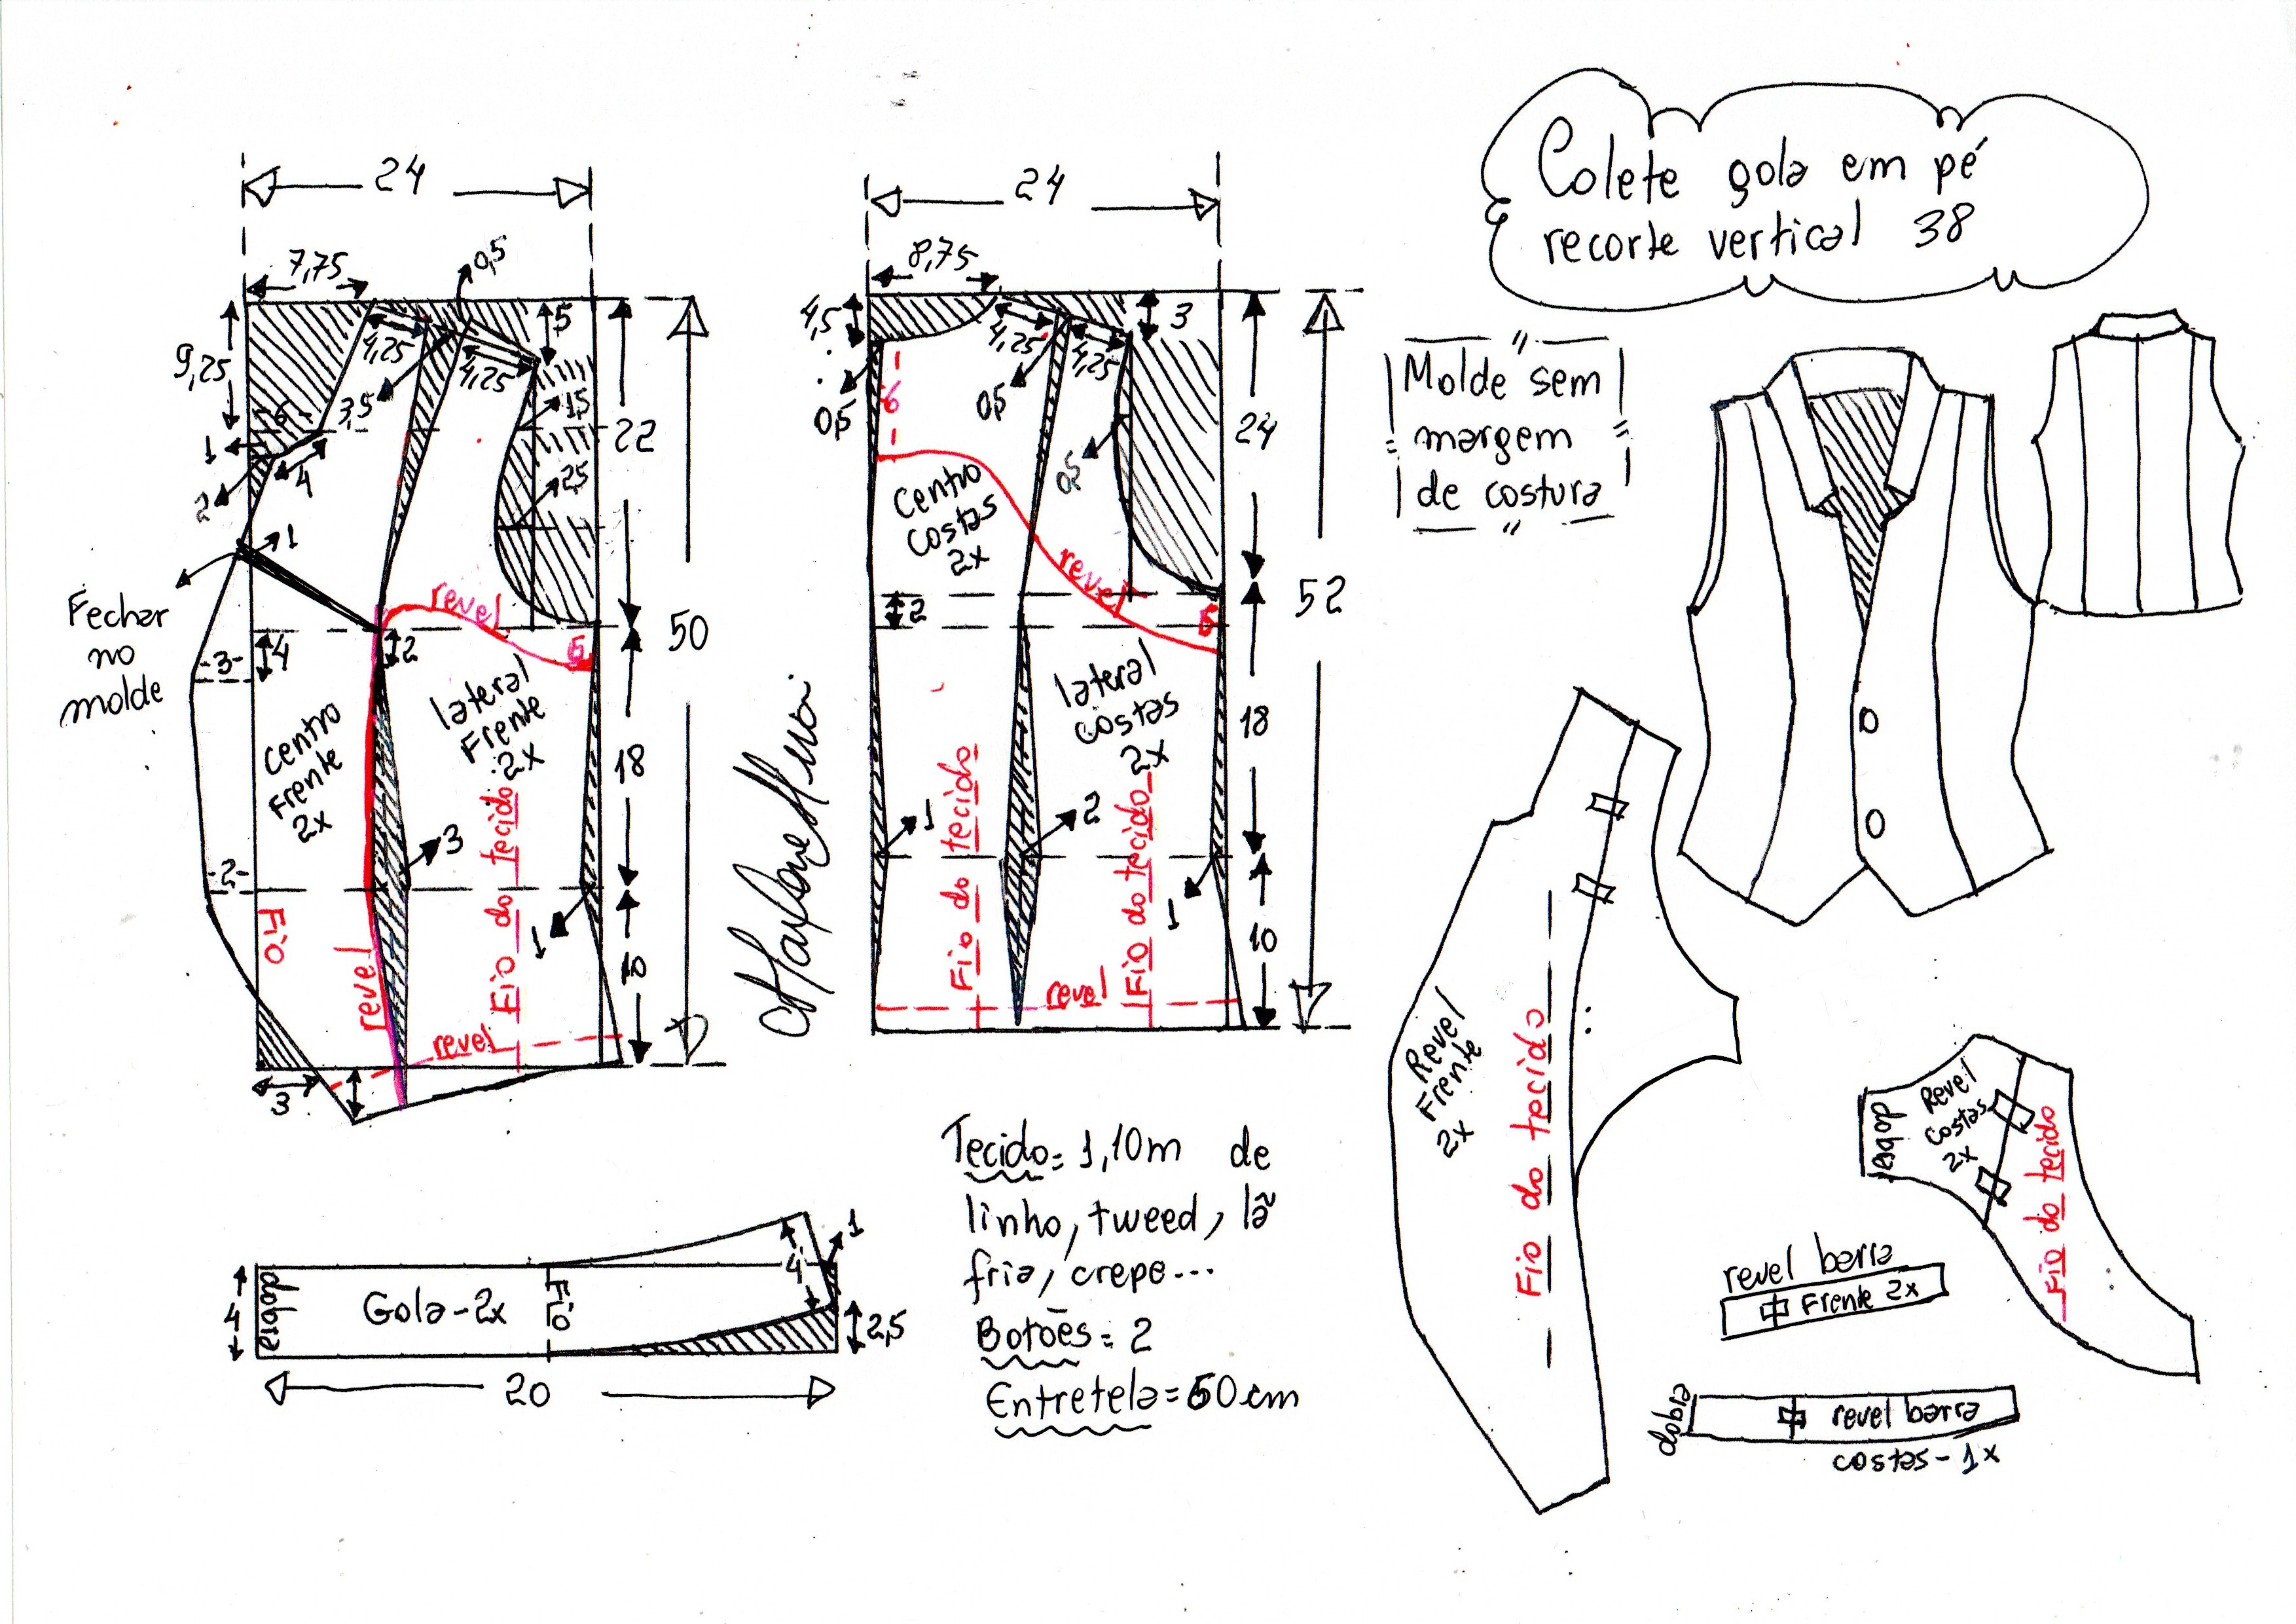 Colete gola em pé
recorte vertical 38
"Molde sem
margem
de costura"
24
7,75
0,5
9,25
4,25
5
4,25
3,5
6
1,5
1
4
2
2,5
22
1
Fechar
no
molde
revel
50
-3-
4
2
5
centro
Frente
2x
lateral
Frente
2x
18
3
-2-
Fio
revel
Fio do tecido
1
10
revel
3
24
8,75
4,5
4,25
4,25
3
0,5
6
0,5
0,5
24
centro
costas
2x
revel
2
5
52
lateral
costas
2x
18
1
2
1
Fio do tecido
Fio do tecido
10
revel
dobra
4
Gola-2x
Fio
4
1
2,5
20
Tecido= 1,10m de
linho, tweed, lã
fria, crepe...
Botões= 2
Entretela=50cm
Revel
Frente
2x
Fio do tecido
dobra
Revel
costas
2x
Fio do tecido
revel barra
Frente 2x
dobra
revel barra
costas-1x